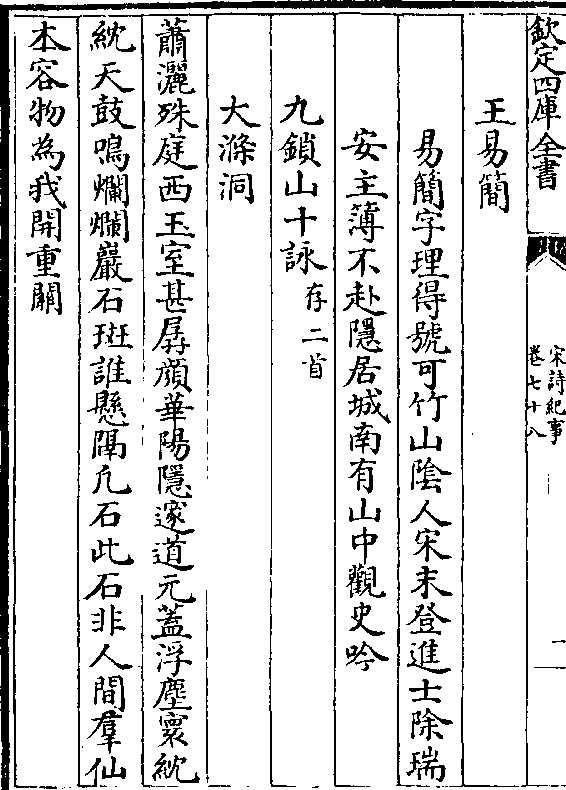 欽定四庫全書
宋詩紀事
卷七十八
一
王易簡
易簡字理得號可竹山隂人宋末登進士除瑞
安主簿不赴隱居城南有山中觀史吟
九鎖山十詠存二首
大滌洞
蕭灑殊庭西玉室甚孱顔華陽隱邃道元蓋浮塵寰紞
紞天鼓鳴爛爛巖石斑誰懸隔凡石此石非人間羣仙
本容物為我開重關